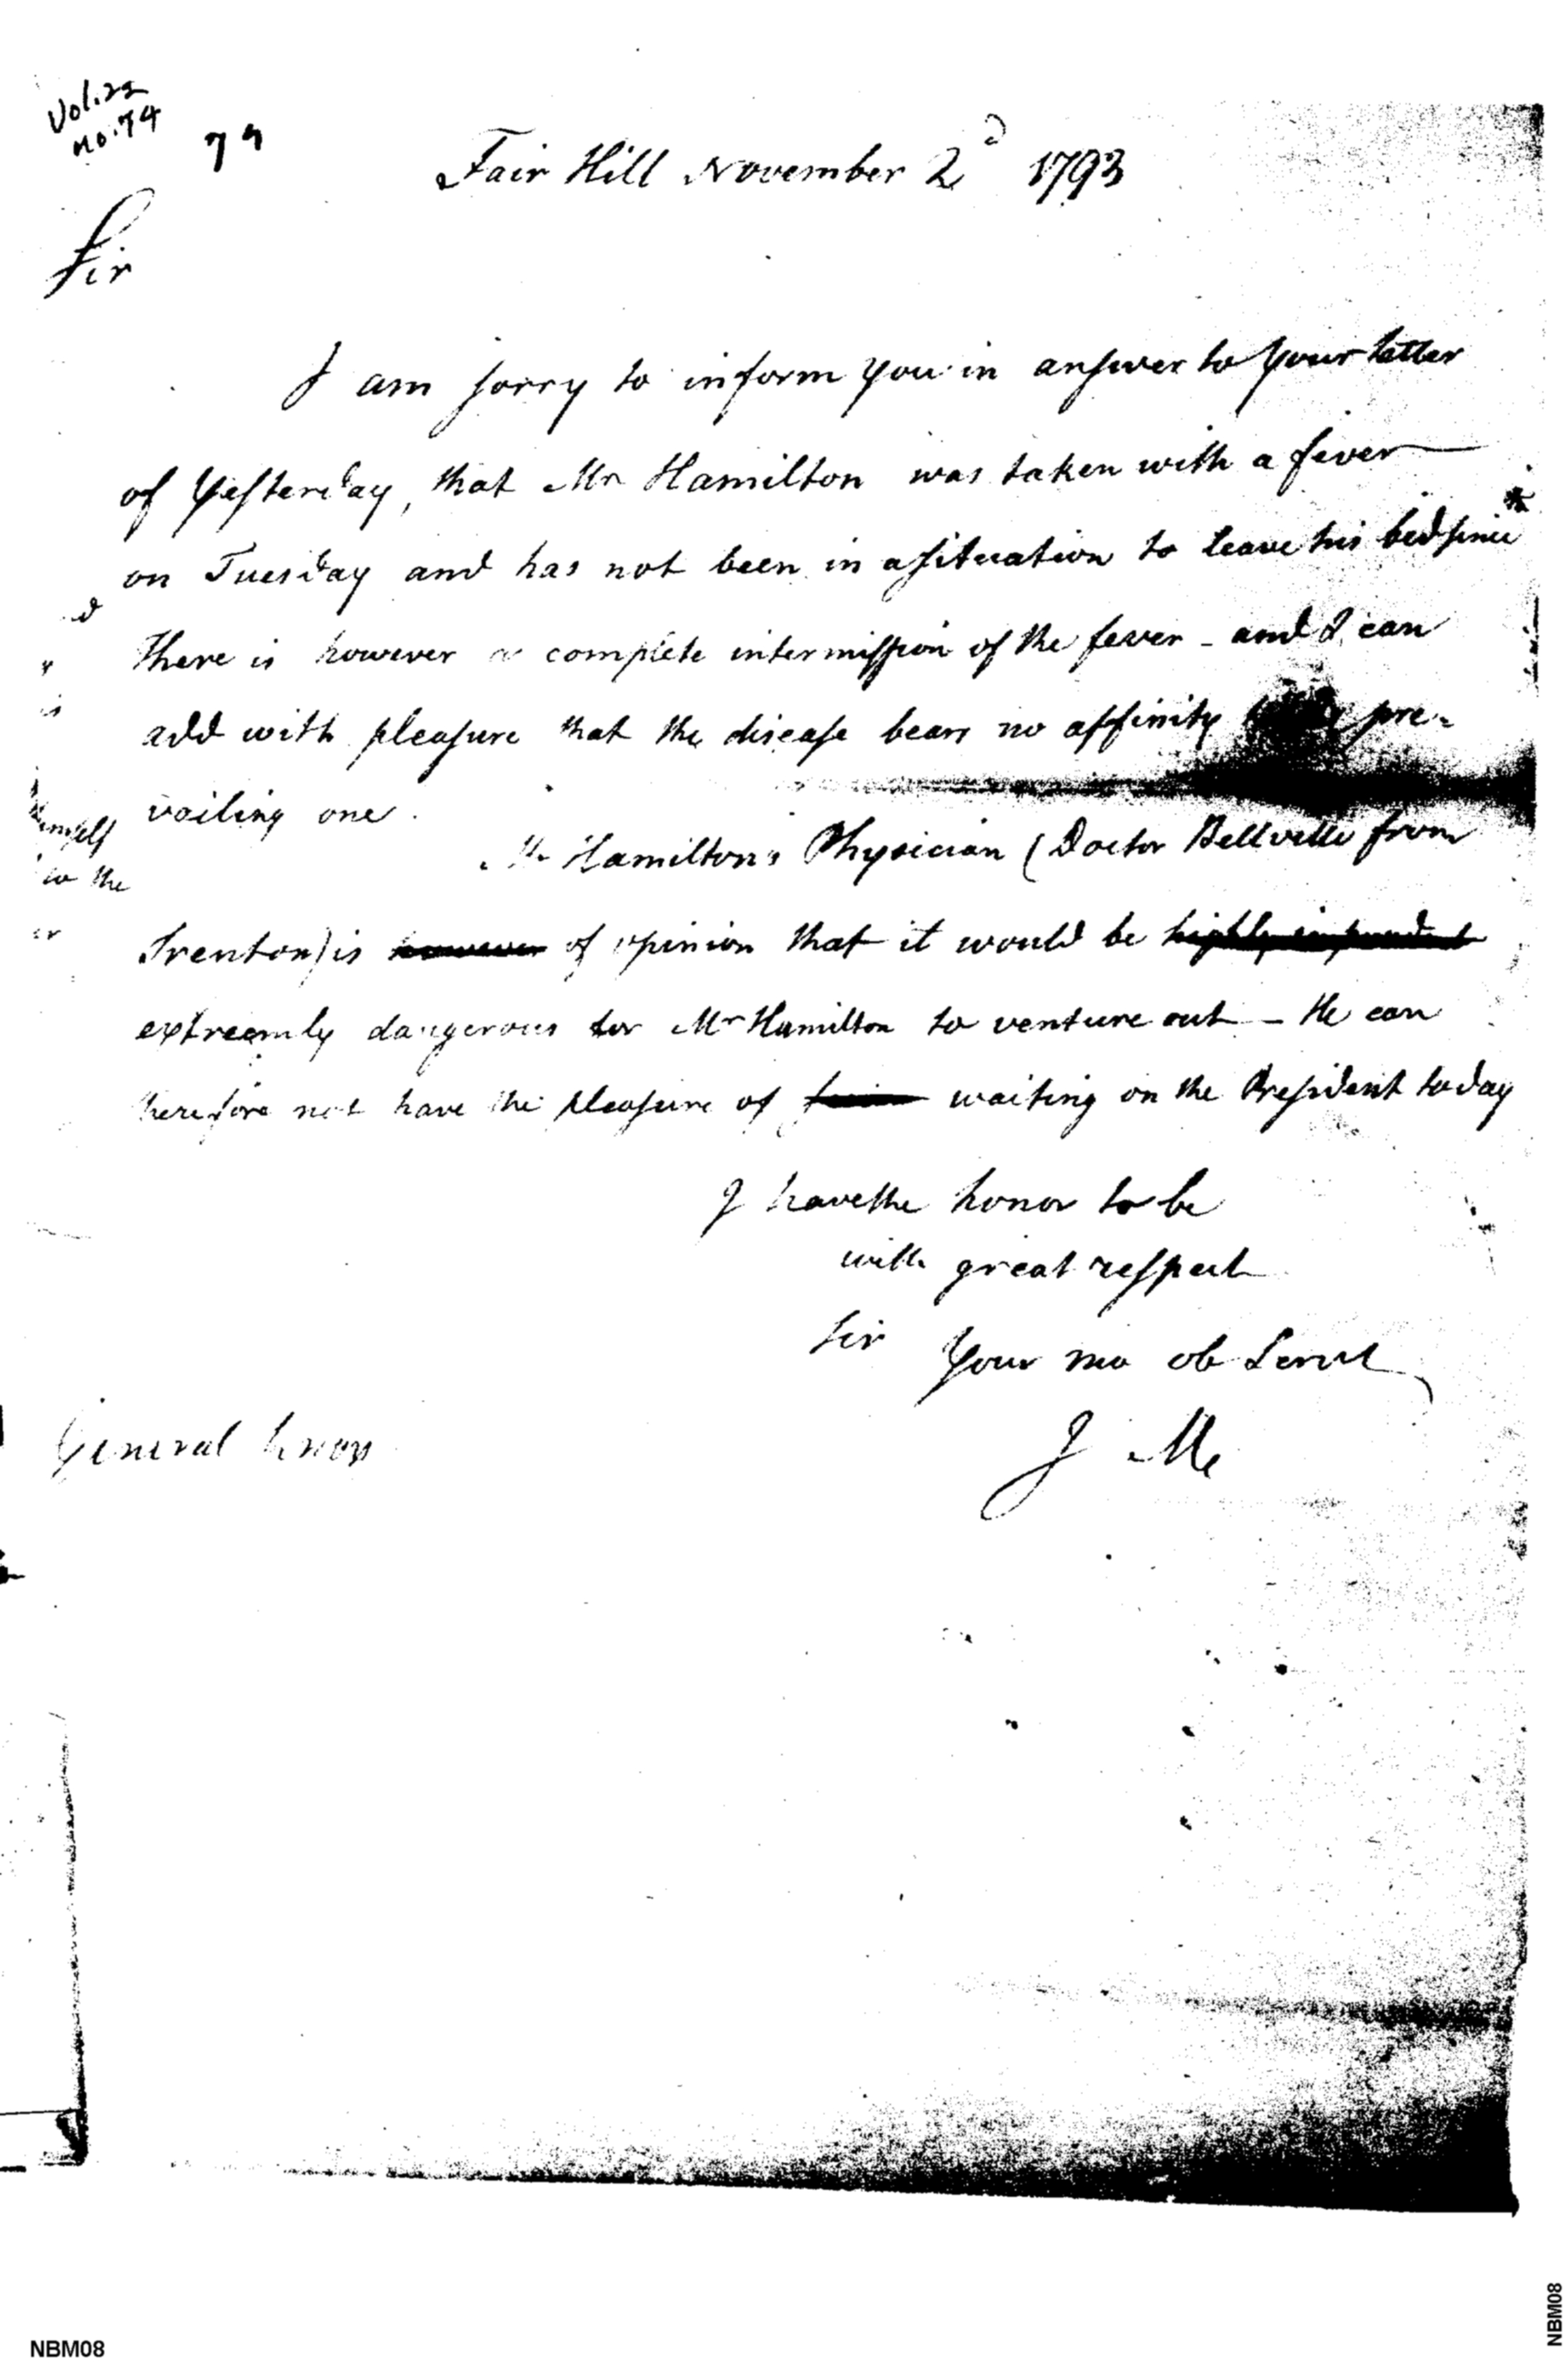 Vol. 22
No. 74
74
Fair Hill November 2d 1793
Sir
I am sorry to inform you in answer to your letter
of yesterday, that Mr Hamilton was taken with a fever
on Tuesday and has not been in a situation to leave his bed since *
There is however a complete intermission of the fever - and I can
add with pleasure that the disease bears no affinity pre-
vailing one.
Mr Hamilton's Physician (Doctor Bellville from
Trenton) is however of opinion that it would be highly imprudent
extreemly dangerous for Mr Hamilton to venture out - He can
therefore not have the pleasure of waiting on the President today
I have the honor to be
with great respect
Sir Your mo ob Servt
J M
General Knox
d
is
himself
to the
er
NBM08
NBM08